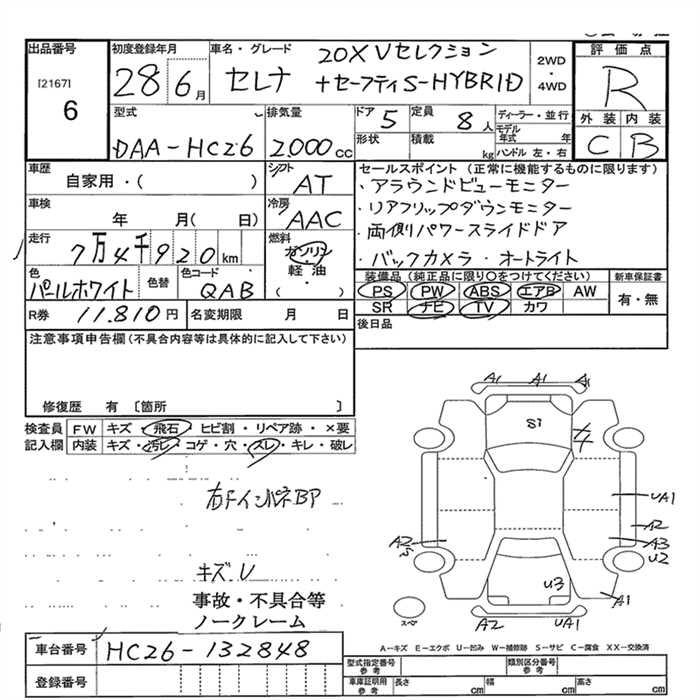 出品番号
[2167]
6
初度登録年月
28 6月
車名・グレード
20X Vセレクション
セレナ +セーフティS-HYBRID
2WD
・
4WD
評価点
R
外装 内装
C B
型式
DAA-HC26
排気量
2000cc
ドア 5
定員 8人
形状
積載 kg
ディーラー・並行
モデル年式 年
ハンドル 左・右
車歴
自家用・( )
シフト
AT
車検
年 月( 日)
冷房
AAC
走行
7万4千920km
燃料
ガソリン
軽油
・
( )
色
パールホワイト
色替
色コード
QAB
R券 11,810円
名変期限 月 日
セールスポイント (正常に機能するものに限ります)
・アラウンドビューモニター
・リアフリップダウンモニター
・両側パワースライドドア
・バックカメラ・オートライト
装備品(純正品に限り○をつけてください)
PS PW ABS エアB AW
SR ナビ TV カワ
新車保証書
有・無
後日品
注意事項申告欄(不具合内容は具体的に記入して下さい)
修復歴 有 〔箇所 〕
検査員記入欄
FW キズ・飛石・ヒビ割・リペア跡・×要
内装 キズ・汚レ・コゲ・穴・スレ・キレ・破レ
右Fインパネ BP
キズU
事故・不具合等
ノークレーム
A1 A1 A1
S1
UA1
A2
A2
A3
U2
U3
A1
A2 UA1
スペア
A－キズ E－エクボ U－凹み W－補修跡 S－サビ C－腐食 XX－交換済
車台番号 HC26-132848
登録番号
型式指定番号参考
類別区分番号参考
車庫証明用参考
長さ cm
幅 cm
高さ cm